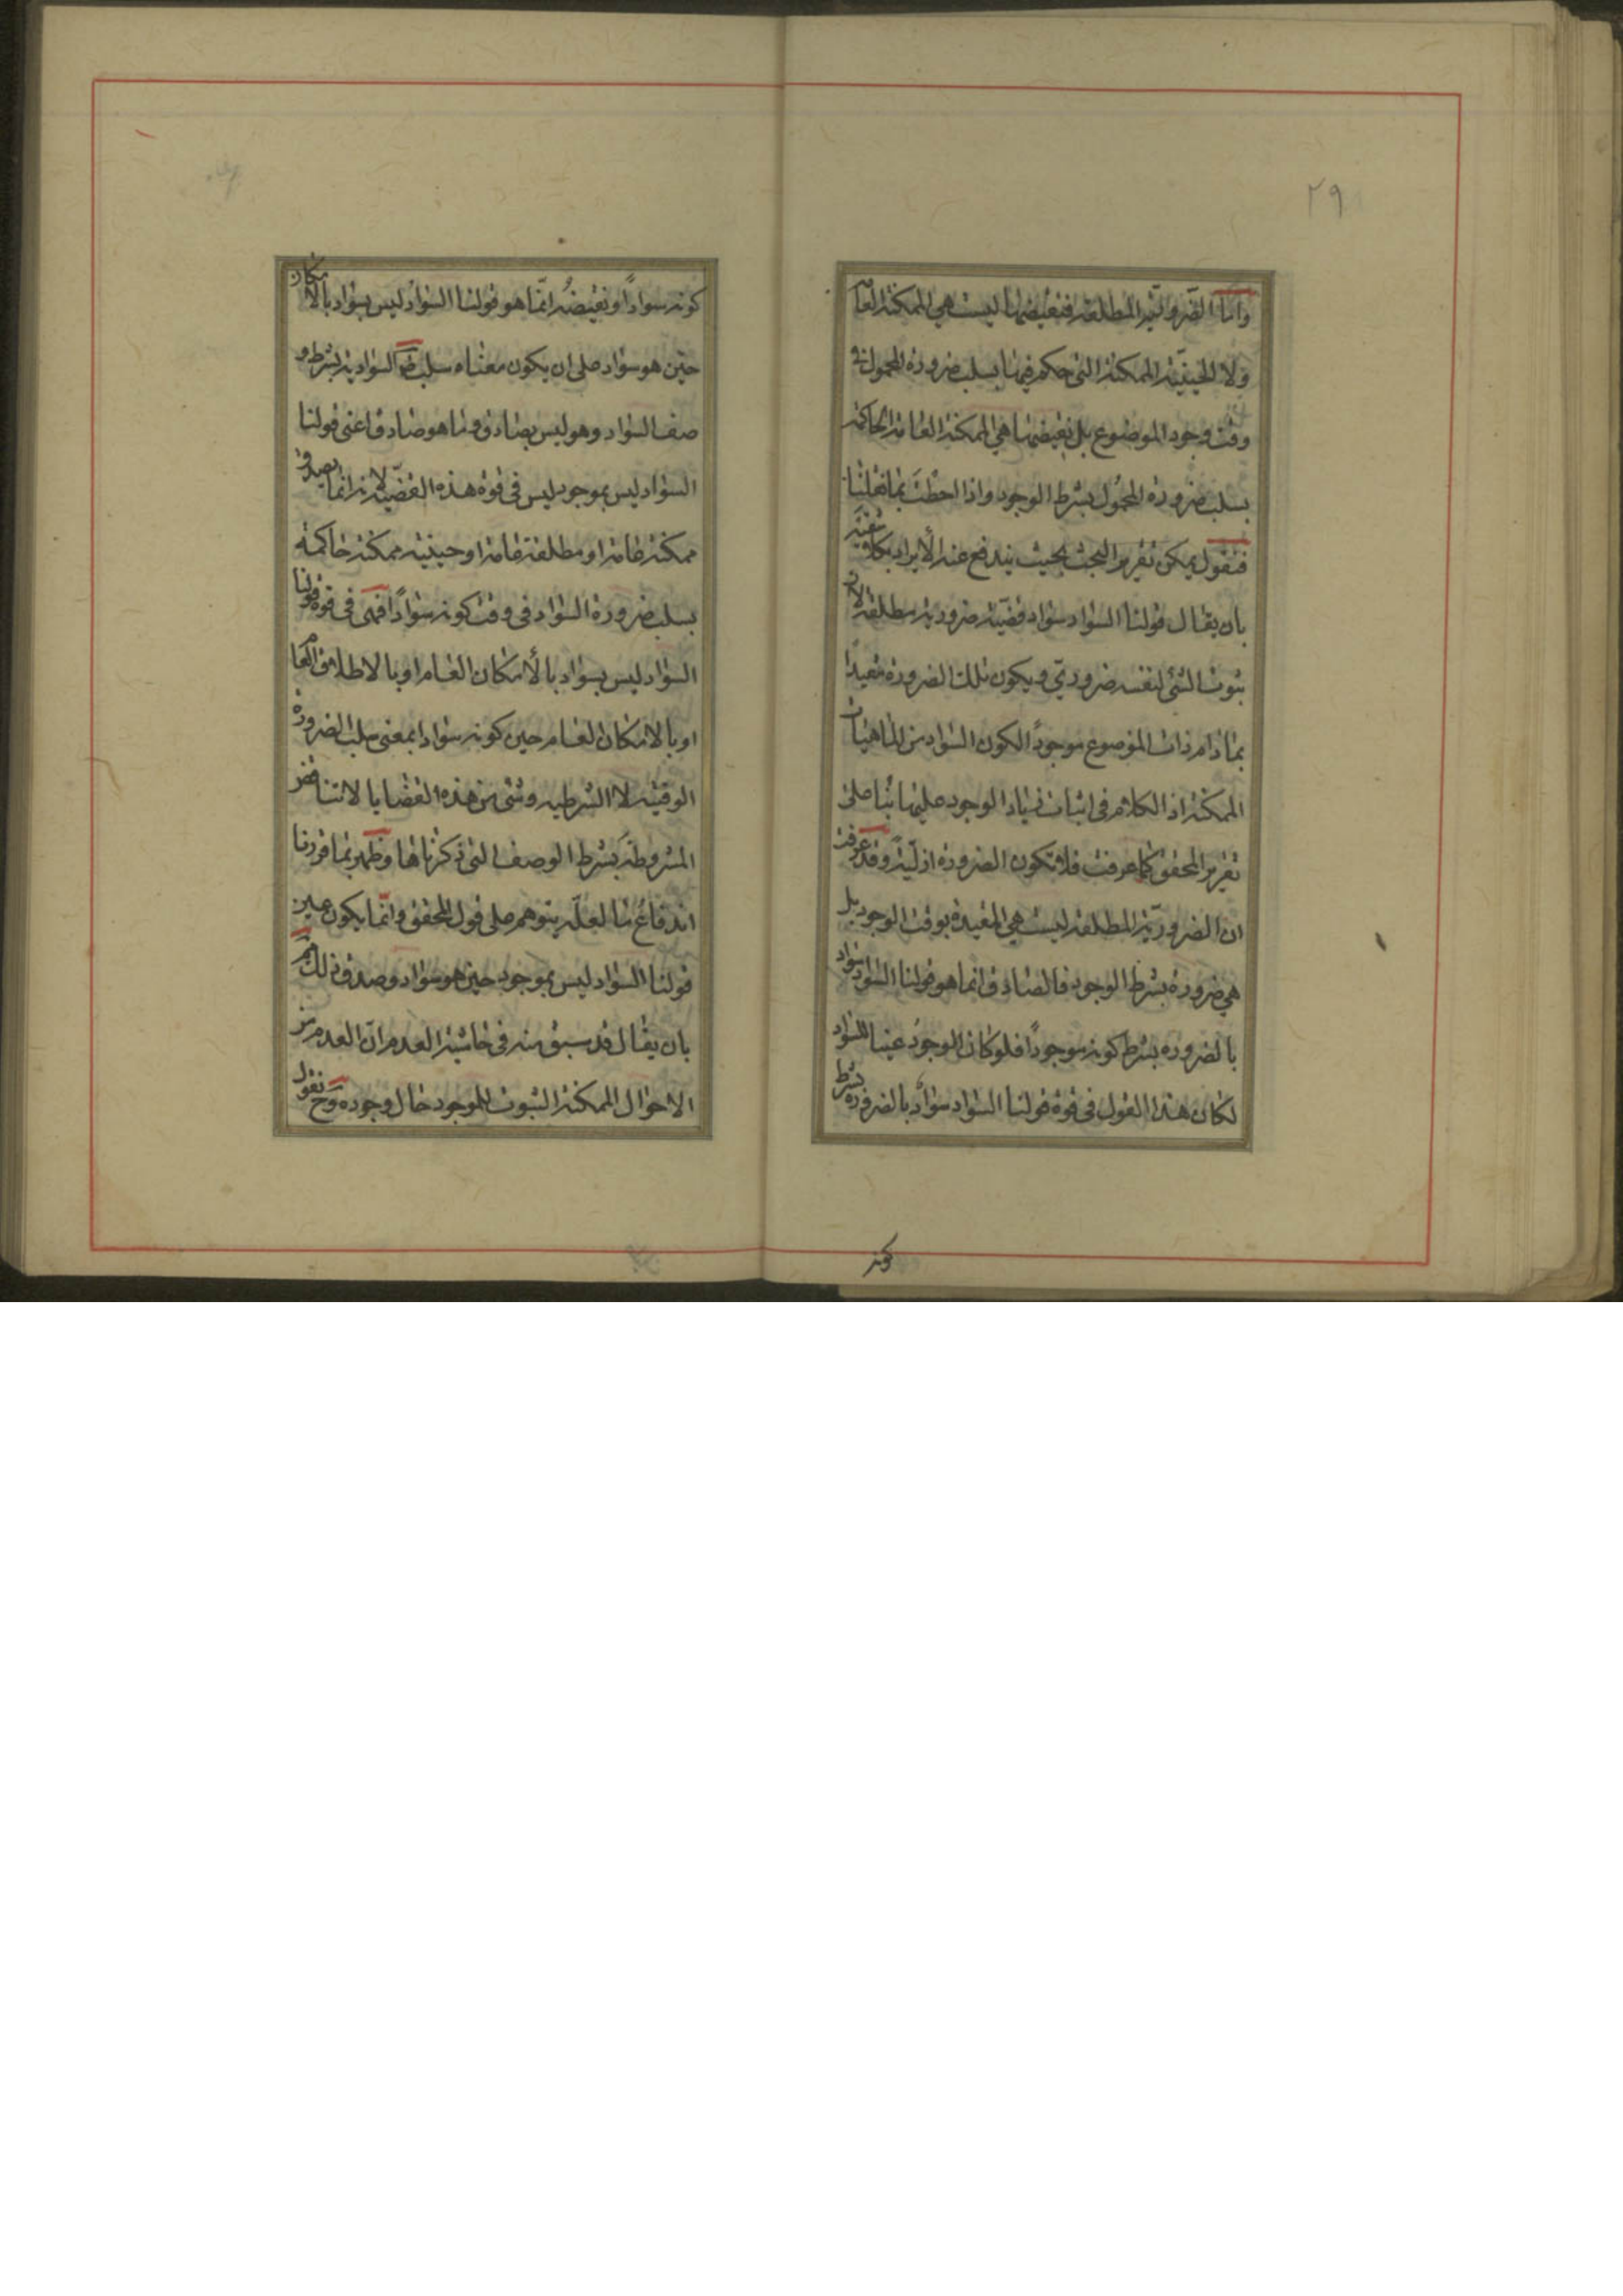 ٢٩
وامّا الضّروريّة المطلقة فنقيضها ليست هي الممكنة العامّة
ولا الحينيّة الممكنة التي حكم فيها بسلب ضرورة المحمول في
وقت وجود الموضوع بل نقيضها هي الممكنة العامة الحاكمة
بسلب ضرورة المحمول بشرط الوجود واذا احطت بما تلنا
فنقول يمكن تقرير البحث بحيث يندفع عنه الأيراد بكلا شقيه
بان يقال قولنا السواد سواد قضيّة ضرورية مطلقة لان
ثبوت الشئ لنفسه ضروريّ ويكون تلك الضرورة مقيدا
بما دام ذات الموضوع موجوداً لكون السواد من الماهيات
الممكنة اذ الكلام في اثبات زيادة الوجود عليها بناء على
تقرير المحقق كما عرفت فلا تكون الضرورة ازليّة وقد عرفت
ان الضروريّة المطلقة ليست هي المقيدة بوقت الوجود بل
هي ضرورة بشرط الوجود فالصادق انما هو قولنا السواد سواد
بالضروره بشرط كونه موجوداً فلو كان الوجود عينا للسواد
لكان هذا القول في قوة قولنا السواد سواد بالضرورة بشرط
كونه
كونه سواداً ونقيضه انّما هو قولنا السواد ليس بسواد بالامكان
حين هو سواد على ان يكون معناه سلب ضـ السوادية بشرط و
صف السواد وهو ليس بصادق وما هو صادق اعنى قولنا
السواد ليس بموجود ليس في قوة هذه القضيّة لانه انما يصدق
ممكنة عامة او مطلقة عامة او حينية ممكنة حاكمة
بسلب ضرورة السواد في وقت كونه سواداً فهى في قوة قولنا
السواد ليس بسواد بالأمكان العام او بالاطلاق العام
او بالامكان العام حين كونه سوادا بمعنى سلب الضرورة
الوقتية لا الشرطيه وشئ من هذه القضايا لا تناقض
المشروطة بشرط الوصف التي ذكرناها وظهر بما قررنا
اندفاع ما لعلّه يتوهم على قول المحقق وانّما يكون عين
قولنا السواد ليس بموجود حين هو سواد وصدق ذلك ثم
بان يقال قد سبق منه في حاشية العدم انّ العدم من
الاحوال الممكنة الثبوت للموجود حال وجوده وح نقول